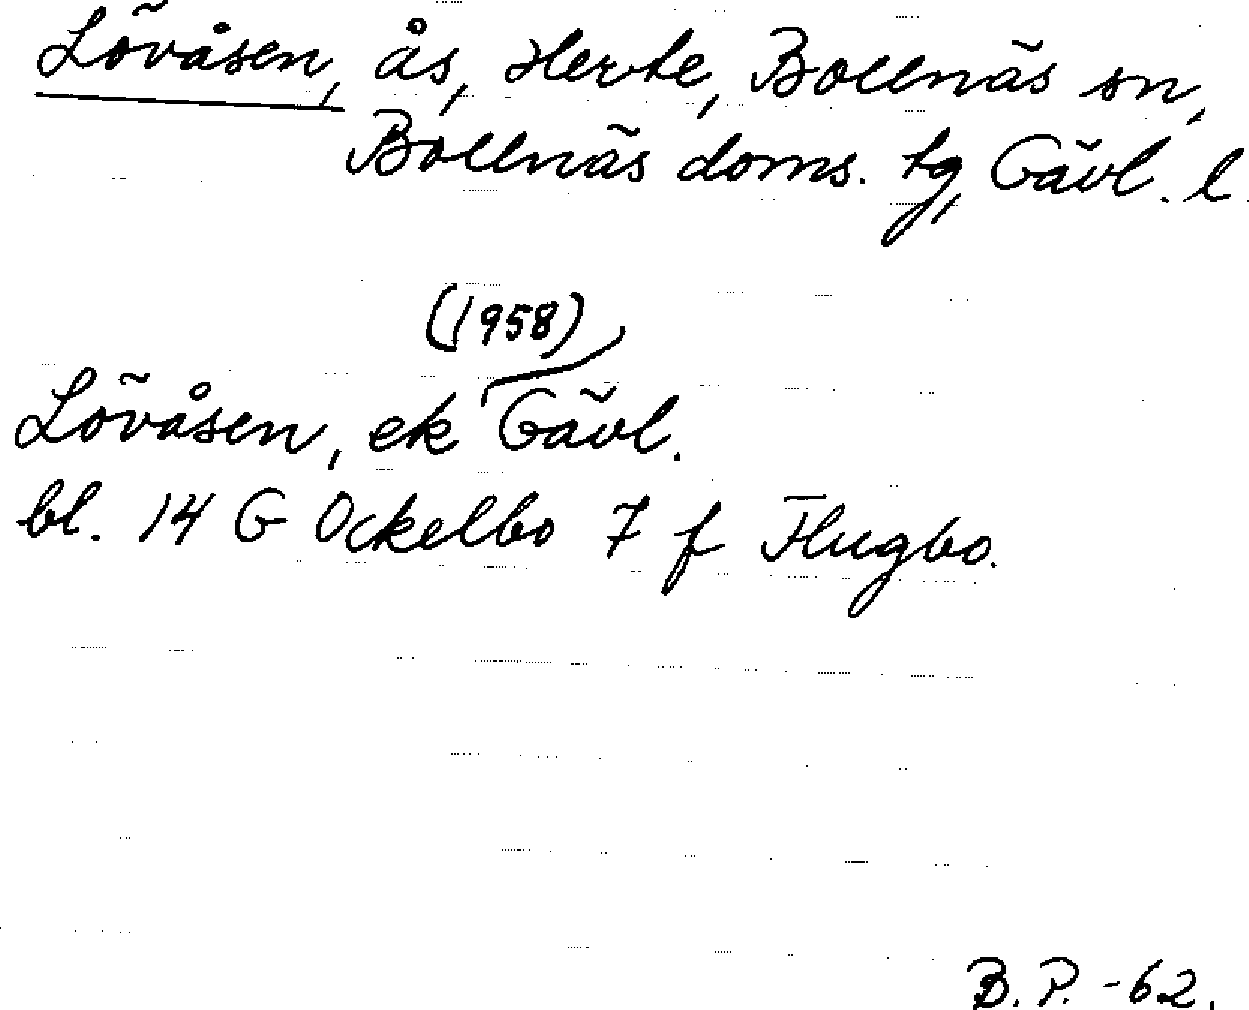 Lövåsen, ås, Herte, Bollnäs sn,
Bollnäs doms. tg, Gävl. l.
(1958)
Lövåsen, ek Gävl.
bl. 14 G Ockelbo 7 f Flugbo.
B. P. -62.